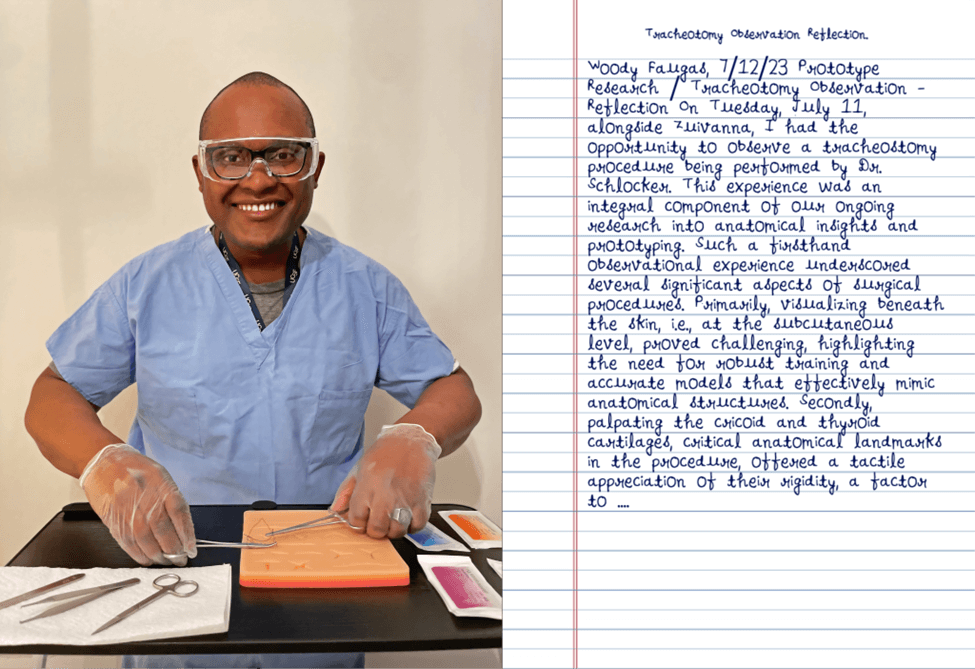 Tracheotomy Observation Reflection
Woody Faugas, 7/12/23 Prototype
Research / Tracheotomy Observation -
Reflection On Tuesday, July 11,
alongside Zuivanna, I had the
opportunity to observe a tracheostomy
procedure being performed by Dr.
Schlocker. This experience was an
integral component of our ongoing
research into anatomical insights and
prototyping. Such a firsthand
observational experience underscored
several significant aspects of surgical
procedures. Primarily, visualizing beneath
the skin, i.e., at the subcutaneous
level, proved challenging, highlighting
the need for robust training and
accurate models that effectively mimic
anatomical structures. Secondly,
palpating the cricoid and thyroid
cartilages, critical anatomical landmarks
in the procedure, offered a tactile
appreciation of their rigidity, a factor
to ....